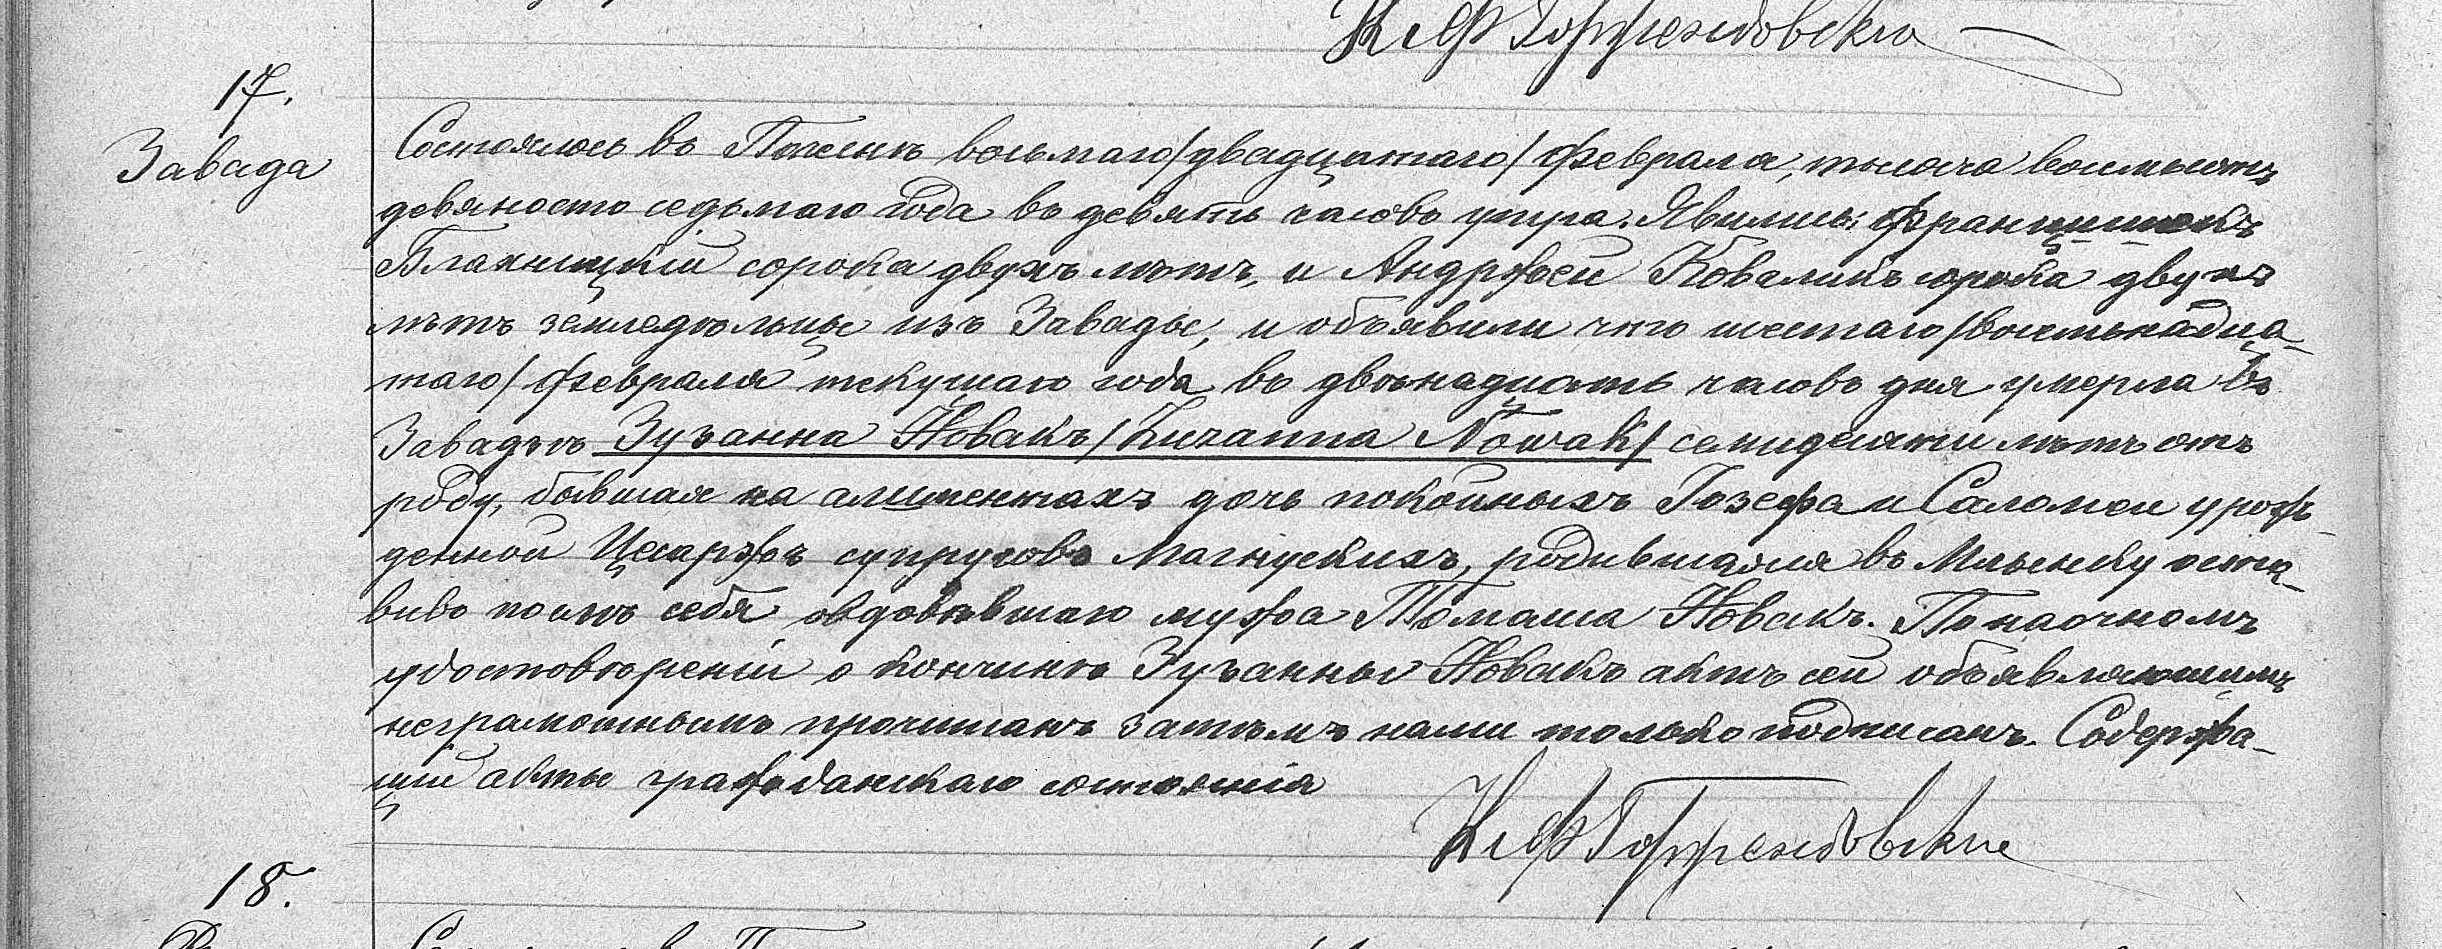 17.
Завада
Состоялось въ деветь восьмаго /двадцатаго/ февраля, тысяча восемьсотъ
девяносто седьмаго года въ девять часовъ утра. Явились: Францишекъ
сорока двухъ лѣтъ, и Андржей Коваликъ сорока двухъ
лѣтъ земледѣльцы изъ Завады, и объявили что шестаго /восемьнадца-
таго/ февраля текущаго года въ двѣнадцать часовъ дня умерла въ
Завадѣ Зузанна Новакъ /Zuzanna Nowak/ семидесяти лѣтъ отъ
роду, бывшая на алиментахъ дочь покойныхъ Іозефа и Саломеи урож-
денной супруговъ родившаяся въ Млынку оста-
вивъ послѣ себя овдовѣвшаго мужа Томаша Новакъ. По наочномъ
удостовѣреніи о кончинѣ Зузанны Новакъ актъ сей объявляющимъ
неграмотнымъ прочитанъ затѣмъ нами только подписанъ. Содержа-
щій акты гражданскаго состоянія
18.